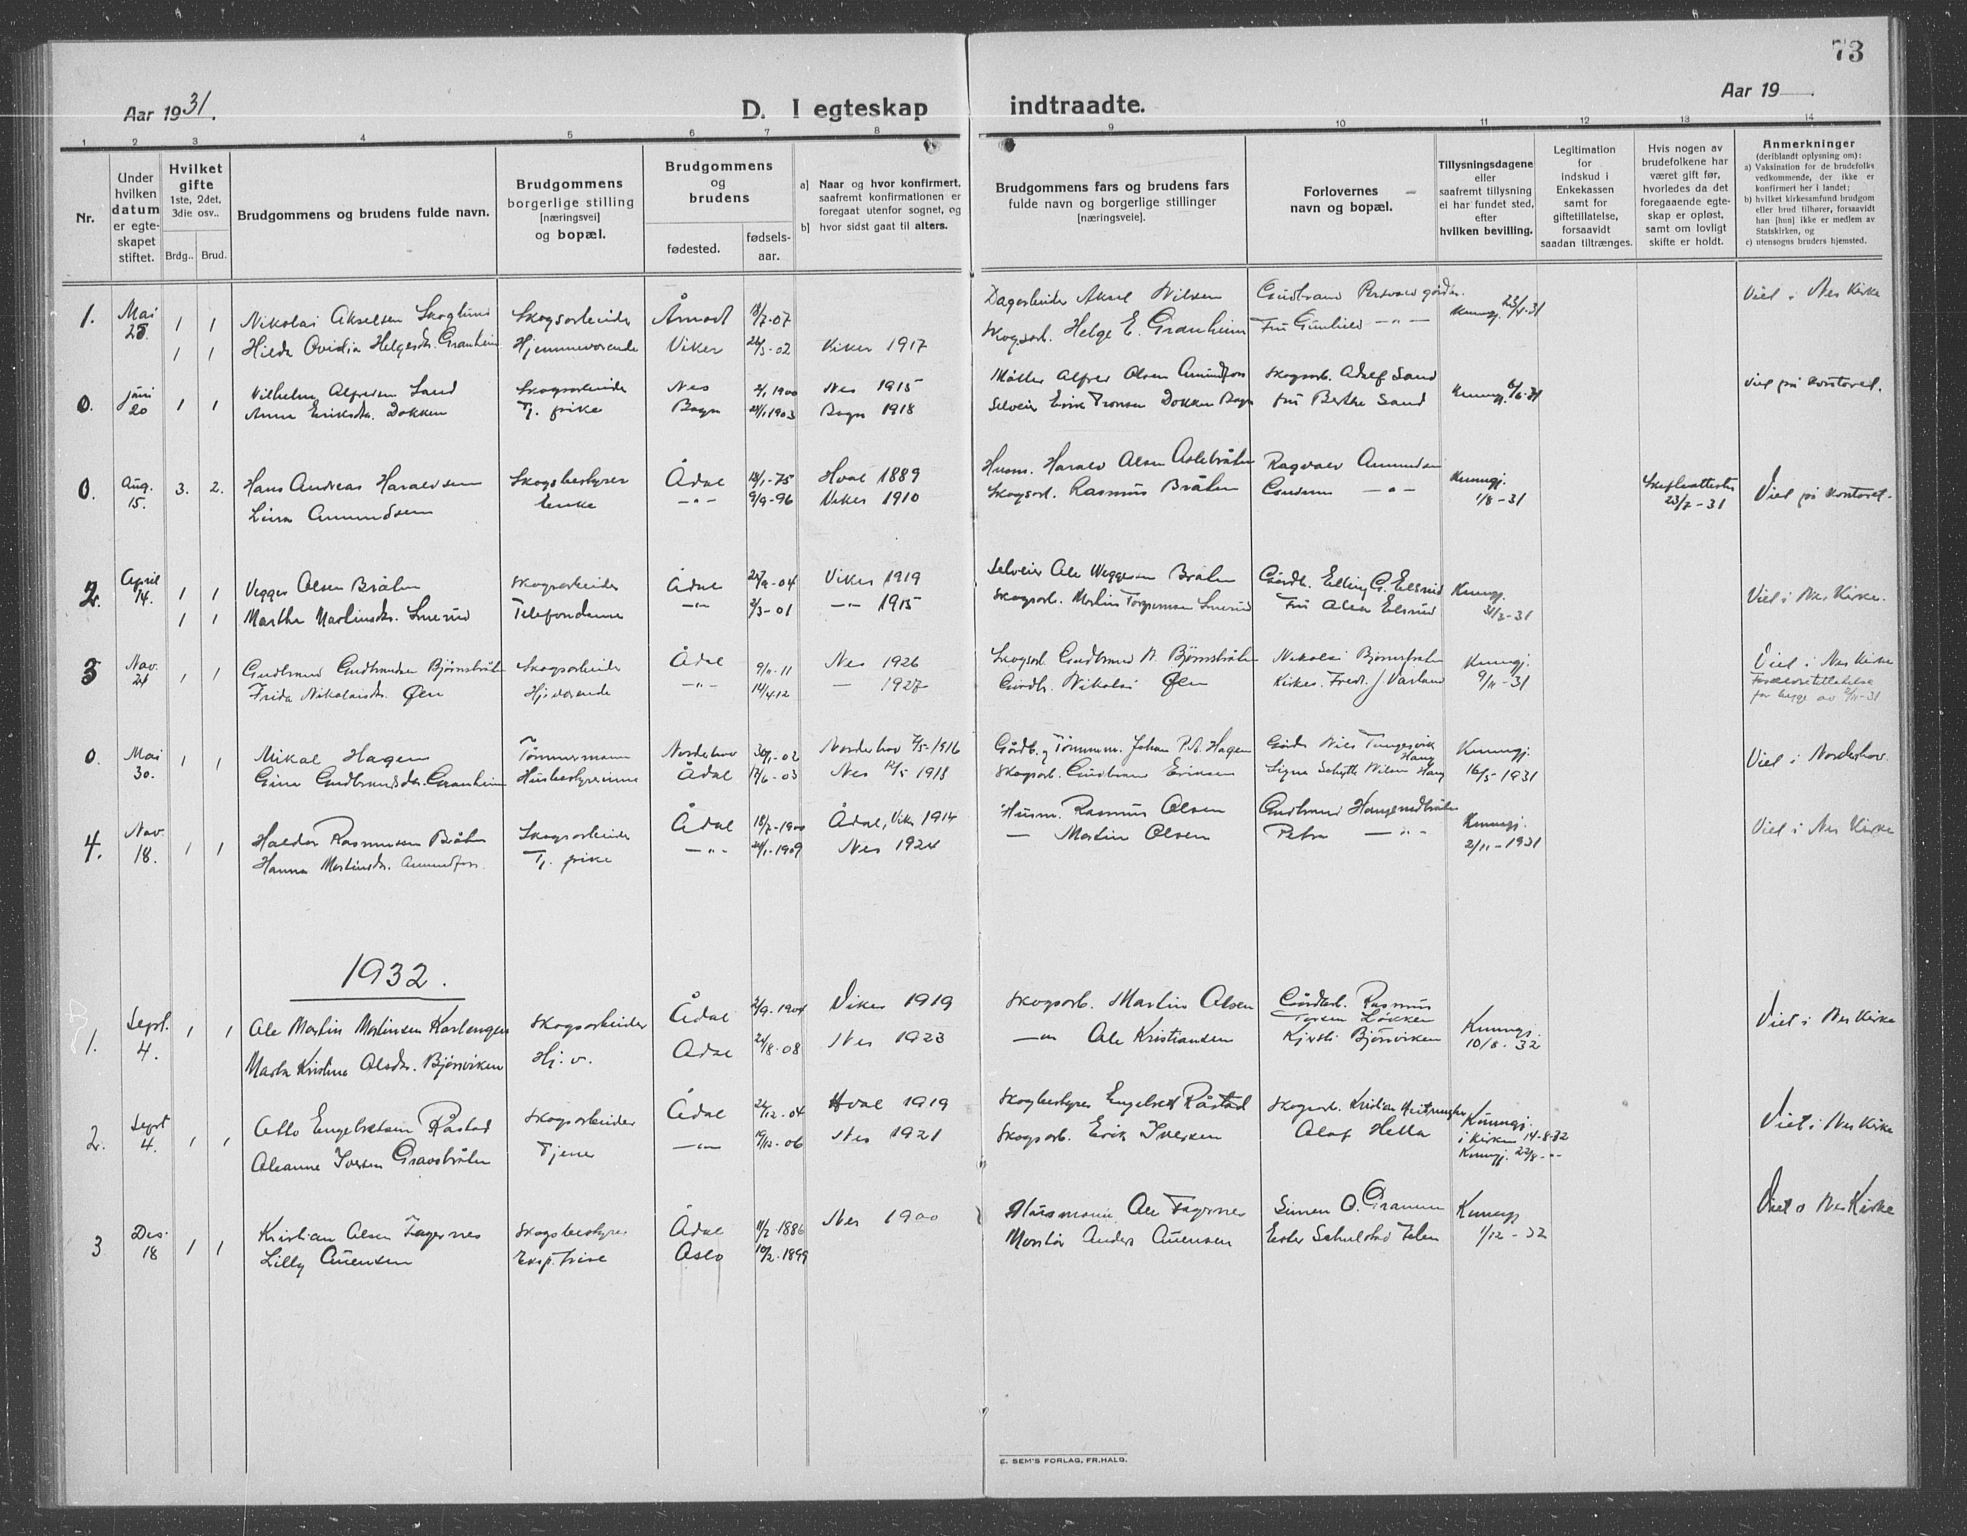 73
Aar 1931.
D. I egteskap indtraadte.
Aar 19
1 2 3 4 5 6 7 8 9 10 11 12 13 14
Nr.
Under hvilken datum er egteskapet stiftet.
Hvilket gifte 1ste, 2det, 3die osv..
Brdg.. Brud.
Brudgommens og brudens fulde navn.
Brudgommens borgerlige stilling [næringsvei] og bopæl.
Brudgommens og brudens
fødested.
fødselsaar.
a] Naar og hvor konfirmert, saafremt konfirmationen er foregaat utenfor sognet, og
b] hvor sidst gaat til alters.
Brudgommens fars og brudens fars fulde navn og borgerlige stillinger [næringsveie].
Forlovernes navn og bopæl.
Tillysningsdagene eller saafremt tillysning ei har fundet sted, efter hvilken bevilling.
Legitimation for indskud i Enkekassen samt for giftetillatelse, forsaavidt saadan tiltrænges.
Hvis nogen av brudefolkene har været gift før, hvorledes da det foregaaende egteskap er opløst, samt om lovligt skifte er holdt.
Anmerkninger (deriblandt oplysning om):
a) Vaksination for de brudefolks vedkommende, der ikke er konfirmert her i landet;
b) hvilket kirkesamfund brudgom eller brud tilhører, forsaavidt han [hun] ikke er medlem av Statskirken, og
c) utensogns bruders hjemsted.
1. Mai 25. 1 1 Nikolai Akselsen Skoglund Skogsarbeider Åmot 18/7-07 Dagarbeider Aksel Nilsen Gudbrand Kunngj. 23/4-31 Viet i Nes Kirke
1 1 Hilda Ovidia Helgesdr. Granheim Hjemmeværende Viker 24/3-02 Viker 1917 Skogsarb. Helge E. Granheim Fru Gunhild —"—
0. Juni 20 1 1 Vilhelm Alfredsen Sand Skogsarbeider Nes 2/1 1900 Nes 1915 Møller Alfred Olsen Amundfoss Skogsarb. Adolf Sand Kunngj. 6/6-31 Viet på kontoret.
Anna Eriksdr. Dokken Tj. pike Bagn 28/1 1903 Bagn 1918 Selveier Erik Tronsen Dokken Bagn Fru Berthe Sand
0. Aug. 15. 3. 2. Hans Andreas Haraldsen Skogbestyrer Ådal 18/1-75 Hval 1889 Husm. Harald Olsen Aslebråten Ragvald Amundsen Kunngj. 1/8-31 Skifteattester 23/7-31 Viet på kontoret.
Lina Amundsen Enke —"— 9/9-96 Viker 1910 Skogsarb. Rasmus Bråten —"—
2. April 14. 1 1 Vegger Olsen Bråten Skogsarbeider Ådal 25/9-04 Viker 1919 Selveier Ole Veggersen Bråten Gårdb. Elling G. Elsrud Kunngj. 31/3-31 Viet i Nes Kirke.
1 1 Martha Martinsdr. Smerud Telefondame —"— 2/3-01 —"— 1915 Skogsarb. Martin Torgersen Smerud Fru Olea Elsrud
3 Nov. 21 1 1 Gudbrand Gudbrandsen Bjørnebråten Skogsarbeider Ådal 9/11-11 Nes 1926 Skogsarb. Gudbrand N. Bjørnebråten Nikolai Bjørnebråten Kunngj. 9/11-31 Viet i Nes Kirke
Frida Nikolaisdr. Øen Hj.værende —"— 14/4 12 — 1927 Gårdb. Nikolai Øen Kirkes. Fredr. J Varland
0. Mai 30. 1 1 Mikal Hagen Tømmermann Norderhov 30/1-02 Norderhov 7/5-1916 Gårdb. og Tømmerm. Johan P.A. Hagen Gårdb. Nils Kunngj. 16/5-1931 Viet i Norderhov.
Gina Gudbrandsdr. Granheim Husbestyrerinne Ådal 17/6-03 Nes 12/5 1918 Skogsarb. Gudbrand Eriksen Signe Schytte Nilsen Haug
4. Nov. 18. 1 1 Haldor Rasmussen Bråten Skogsarbeider Ådal 18/7-1900 Ådal, Vik. 1914 Husm. Rasmus Olsen Gudbrand Haugerudbråten Kunngj. 2/11-1931 Viet i Nes Kirke
Hanna Martinsdr. Amundfoss. Tj. pike —"— 24/1-1909 Nes 1924 — Martin Olsen Petra —"—
1932.
1. Sept. 4. 1 1 Ole Martin Martinsen Karlengen Skogsarbeider Ådal 2/9-1904 Viker 1919 Skogsarb. Martin Olsen Gårdarb. Rasmus Løkken Kunngj. 10/8-32 Viet i Nes Kirke
Marta Kristine Olsdr. Bjørnviken Hj. v. Ådal 24/8-08 Nes 1923 —"— Ole Kristiansen Kjersti Bjørnviken
2. Sept 4. 1 1 Otto Engebretsen Råstad Skogsarbeider Ådal 24/12-04 Hval 1919 Skogbestyrer Engebret Råstad Skogsarb. Kristian Kunngj. i kirken 14-8-32 Viet i Nes Kirke
Oleanne Iversen Gravsbråten Tjener —"— 19/12-06 Nes 1921 Skogsarb. Erik Iversen Olaf Hella Kunngj. 22/8-"-
3 Des. 18 1 1 Kristian Olsen Fagernes Skogbestyrer Ådal 11/7-1886 Nes 1900 Husmann Ole Fagernes Simen O. Granum Kunngj. 1/12-32 Viet i Nes Kirke
Lilly Auensen Eksp.trise Oslo 10/2-1899 Montør Anders Auensen Ester Schulstad
E. SEM'S FORLAG, FR.HALD.